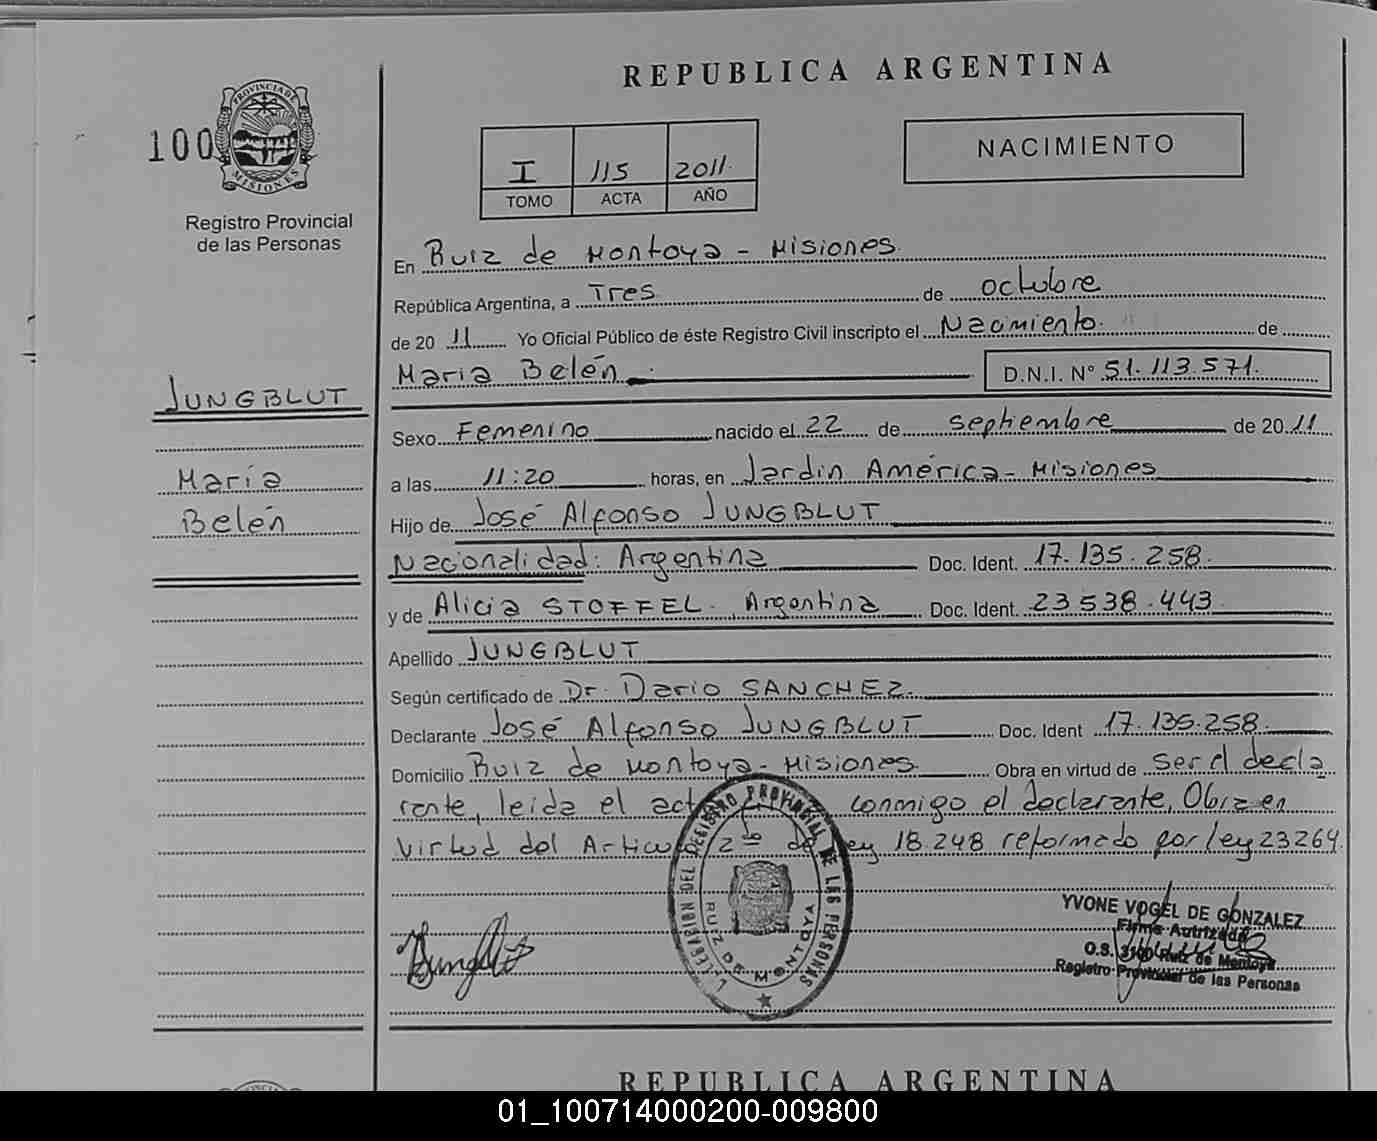 REPUBLICA ARGENTINA
100
PROVINCIA DE
MISIONES
Registro Provincial
de las Personas
I 115 2011
TOMO ACTA AÑO
NACIMIENTO
En Ruiz de Montoya - Misiones
República Argentina, a Tres de octubre
de 2011 Yo Oficial Público de éste Registro Civil inscripto el Nacimiento de
Maria Belén D.N.I. Nº 51.113.571
JUNGBLUT
María
Belén
Sexo Femenino nacido el 22 de septiembre de 2011
a las 11:20 horas, en Jardin América - Misiones
Hijo de José Alfonso JUNGBLUT
Nacionalidad: Argentina Doc. Ident. 17.135.258
y de Alicia STOFFEL, Argentina Doc. Ident. 23538.443
Apellido JUNGBLUT
Según certificado de Dr. Dario SANCHEZ
Declarante José Alfonso JUNGBLUT Doc. Ident 17.135.258
Domicilio Ruiz de Montoya - Misiones Obra en virtud de ser el decla
rante, leida el conmigo el declarante, Obra en
virtud del 2do de 18.248 reformado por ley 23264
DELEGACION DEL REGISTRO PROVINCIAL DE LAS PERSONAS
RUIZ DE MONTOYA
YVONE VOGEL DE GONZALEZ
Firma Autrizada
O.S. 3100 Ruiz de Montoya
Registro Provincial de las Personas
REPUBLICA ARGENTINA
01_100714000200-009800